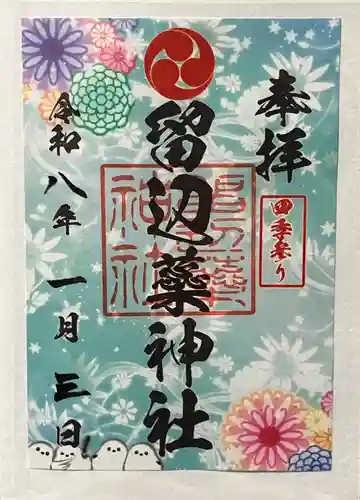 奉拝
四季参り
留辺蘂神社
留辺蘂神社
令和八年一月三日